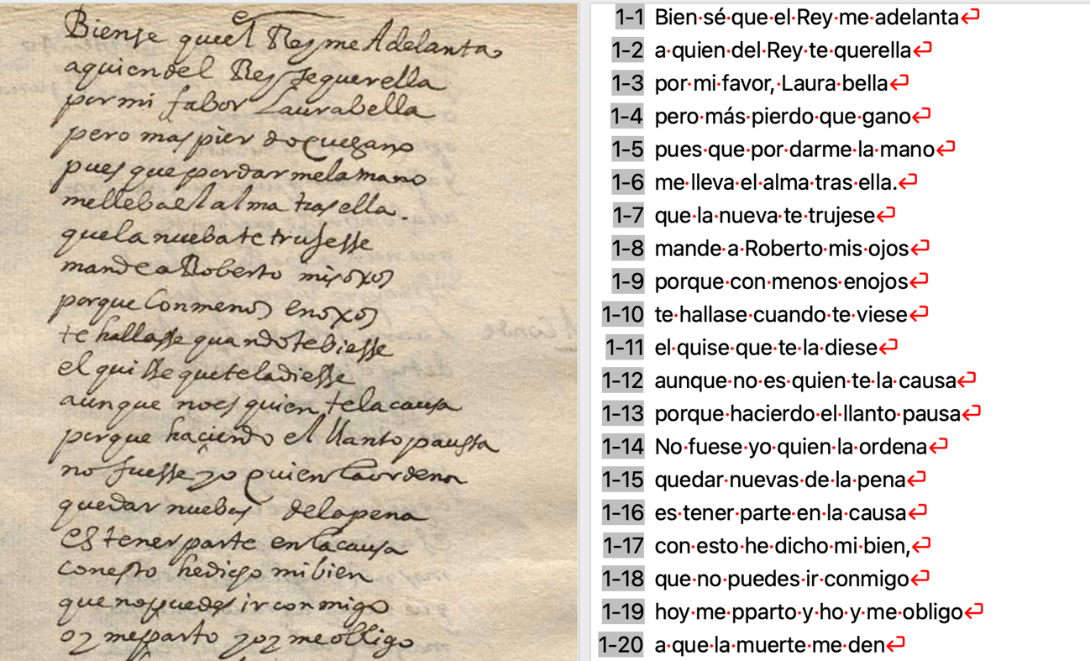 Biense queel Rey me Adelanta
aquien del Rey sequerella
por mi fabor Laurabella
pero mas pierdo quegano
pues que pordarmela mano
mellebael alma tras ella.
quela nuebate trujesse
mande a Roberto mis oxos
porque Conmenos enoxos
te hallasse quandotebiesse
el quisse queteladiesse
aunque noes quien telacausa
porque haciendo el llanto paussa
no fuesse yo quien laordena
quedar nuebas delapena
es tener parte enlacausa
conesto hedicho mibien
que nopuedes ir conmigo
oy meparto yoy me obligo
1-1 Bien sé que el Rey me adelanta
1-2 a quien del Rey te querella
1-3 por mi favor, Laura bella
1-4 pero más pierdo que gano
1-5 pues que por darme la mano
1-6 me lleva el alma tras ella.
1-7 que la nueva te trujese
1-8 mande a Roberto mis ojos
1-9 porque con menos enojos
1-10 te hallase cuando te viese
1-11 el quise que te la diese
1-12 aunque no es quien te la causa
1-13 porque hacierdo el llanto pausa
1-14 No fuese yo quien la ordena
1-15 quedar nuevas de la pena
1-16 es tener parte en la causa
1-17 con esto he dicho mi bien,
1-18 que no puedes ir conmigo
1-19 hoy me pparto y ho y me obligo
1-20 a que la muerte me den